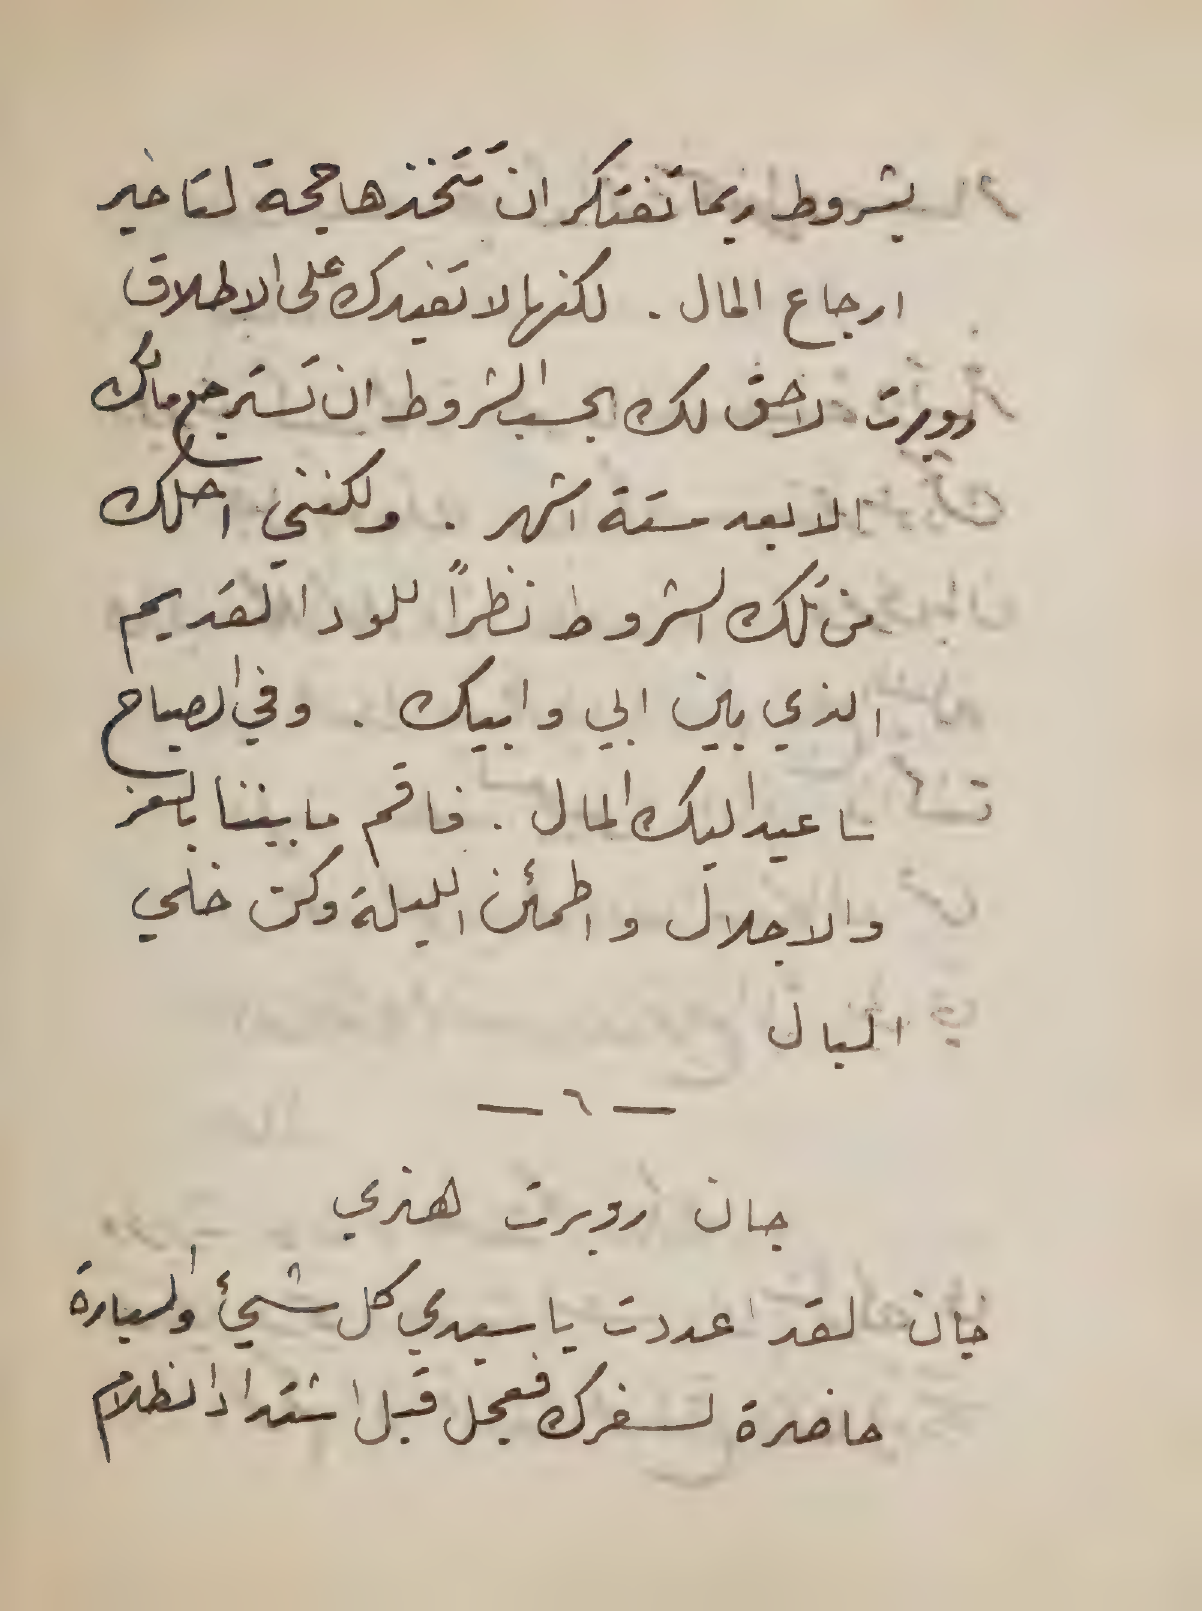 بشروط ربما تفتكر ان تتخذها حجة لتاخير
ارجاع المال . لكنها لا تفيدك على الاطلاق
روبرت لا حق لك بحسب الشروط ان تسترجع مالك
الا بعد ستة اشهر . ولكنني احلك
من تلك الشروط نظراً للود القديم
الذي بين ابي وابيك . وفي الصباح
ساعيد اليك المال . فاقم ما بيننا بالعز
والاجلال واطمئن الليلة وكن خلي
البال
— ٦ —
جان روبرت هنري
جان لقد اعددت يا سيدي كل شيئ والسيارة
حاضرة لسفرك فعجل قبل اشتداد الظلام